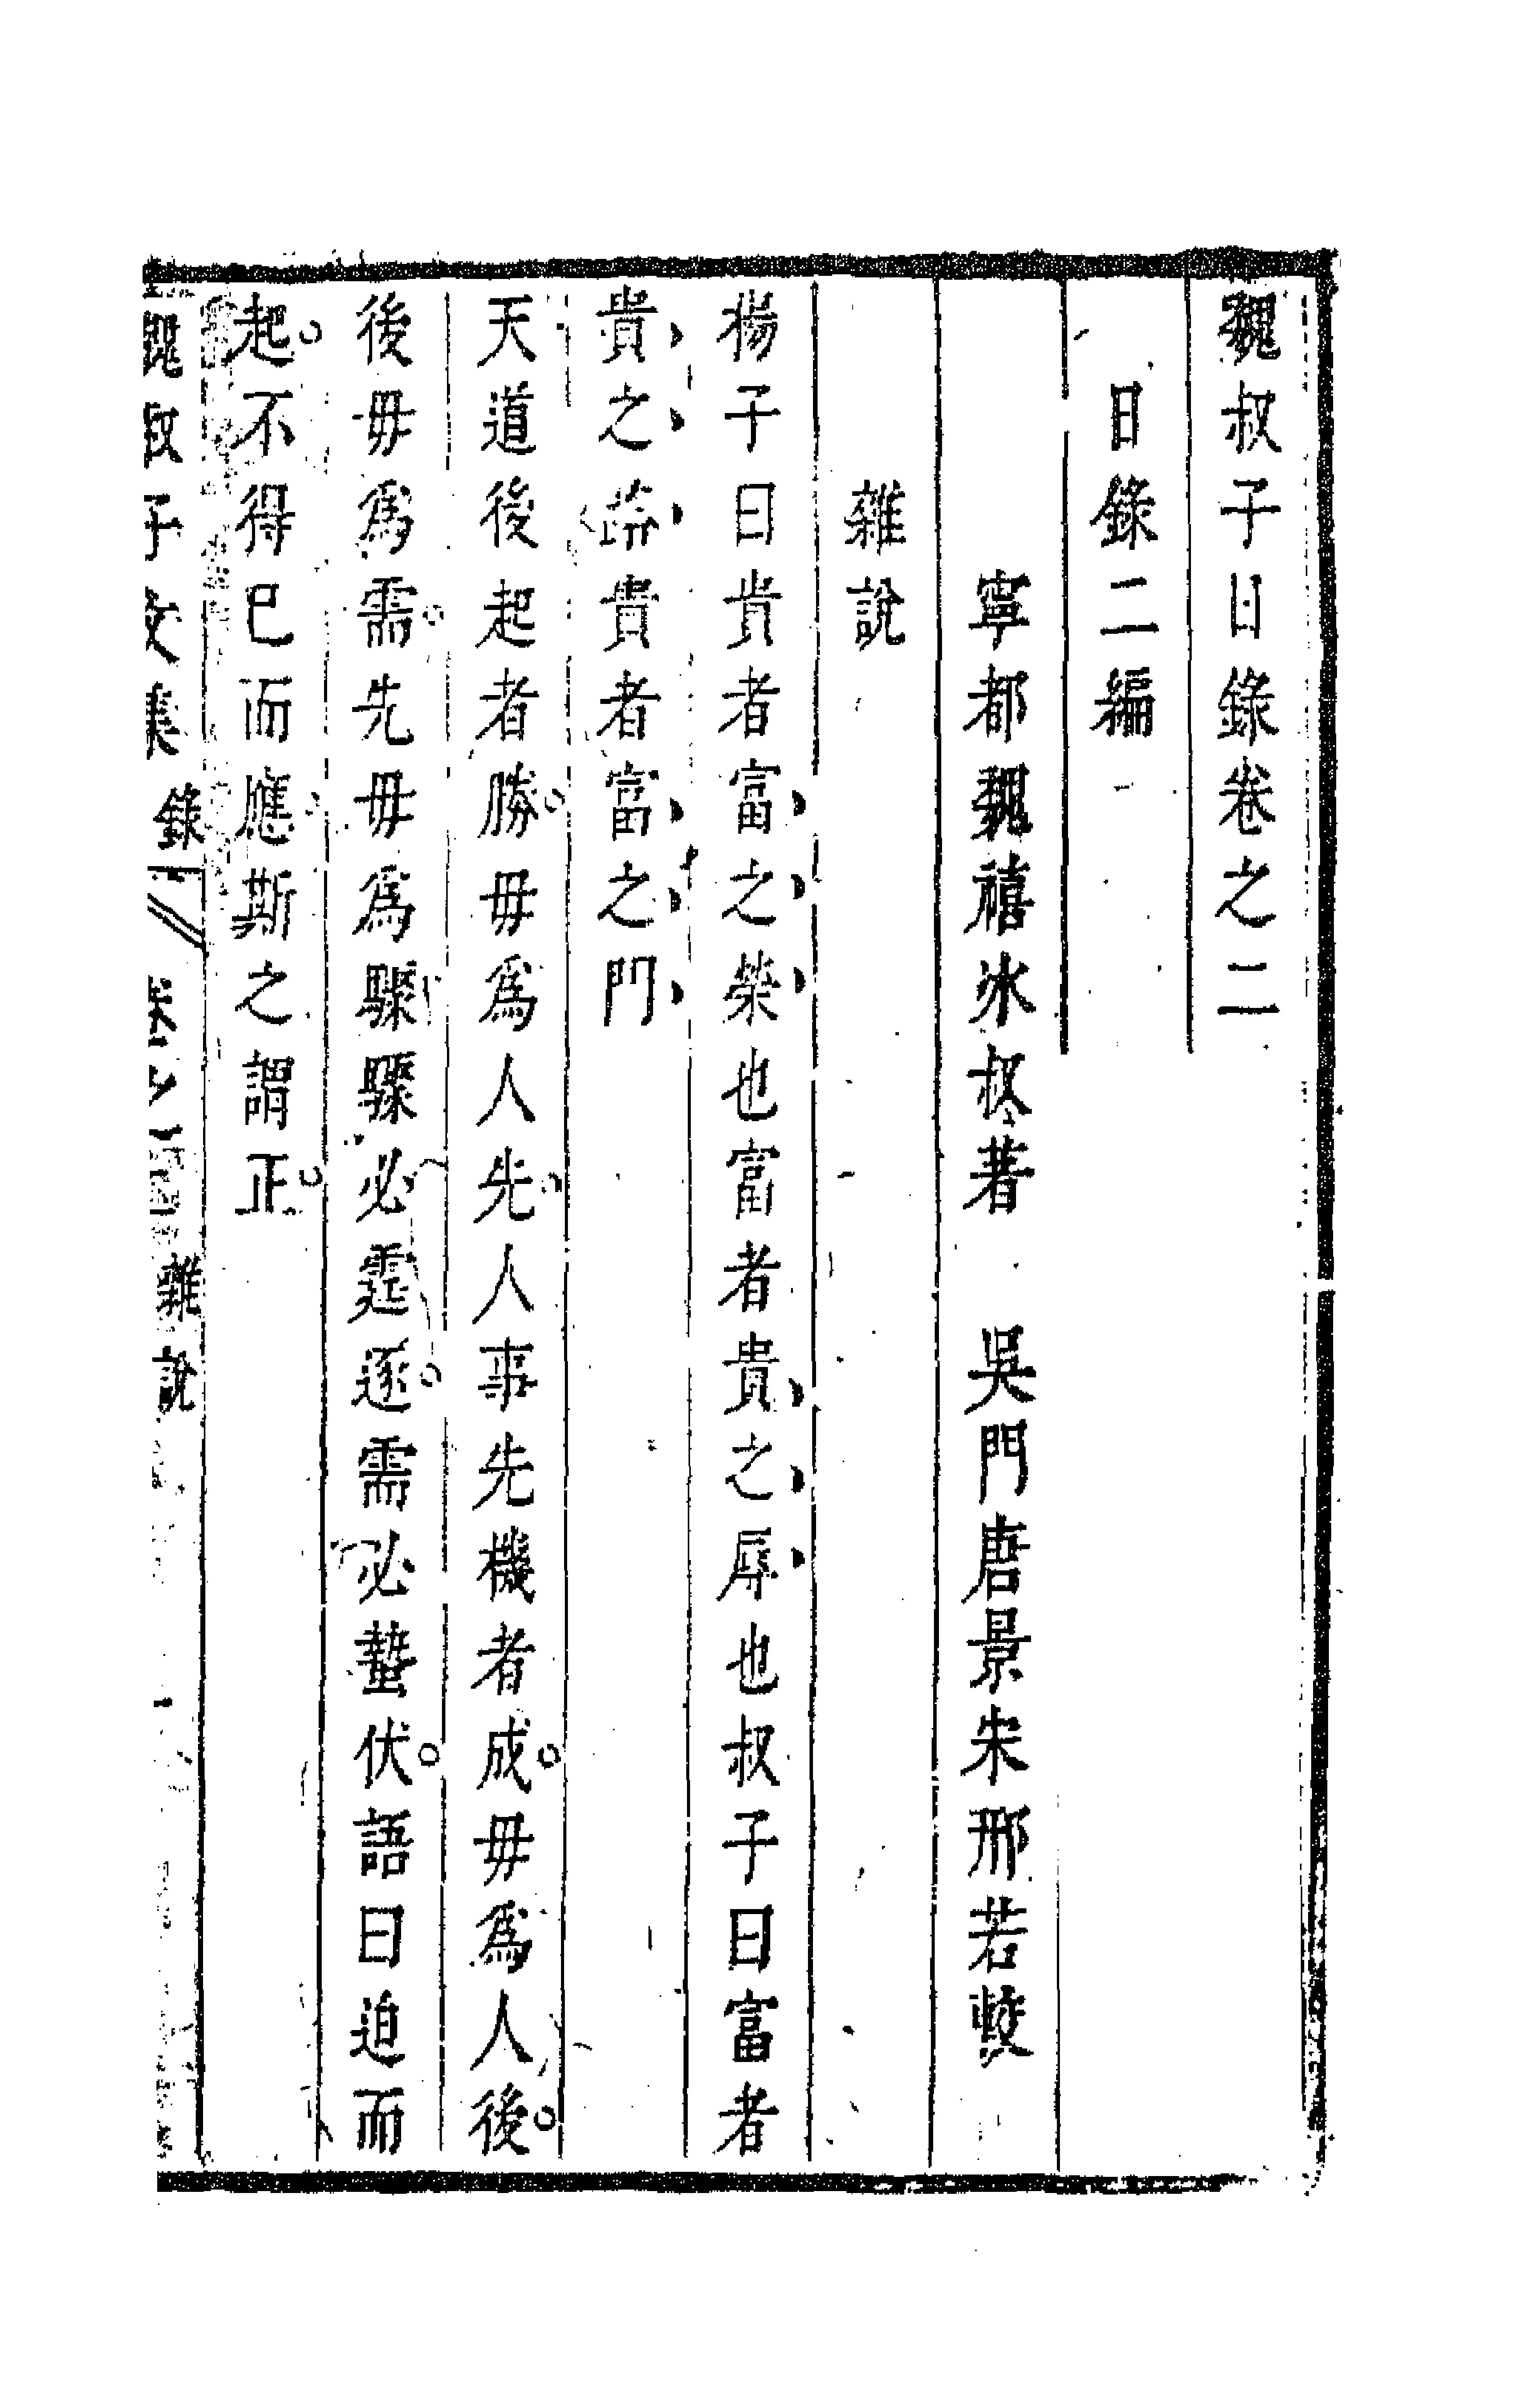 魏叔子日錄卷之二
日錄二編
寧都魏禧冰叔著　吳門唐景宋邢若較
雜說
揚子曰貴者富之榮也富者貴之辱也叔子曰富者
貴之階貴者富之門
天道後起者勝毋爲人先人事先機者成毋爲人後
後毋爲需先毋爲驟驟必霆逐需必蟄伏語曰迫而
起不得巳而應斯之謂正
魏叔子文集　錄　雜說